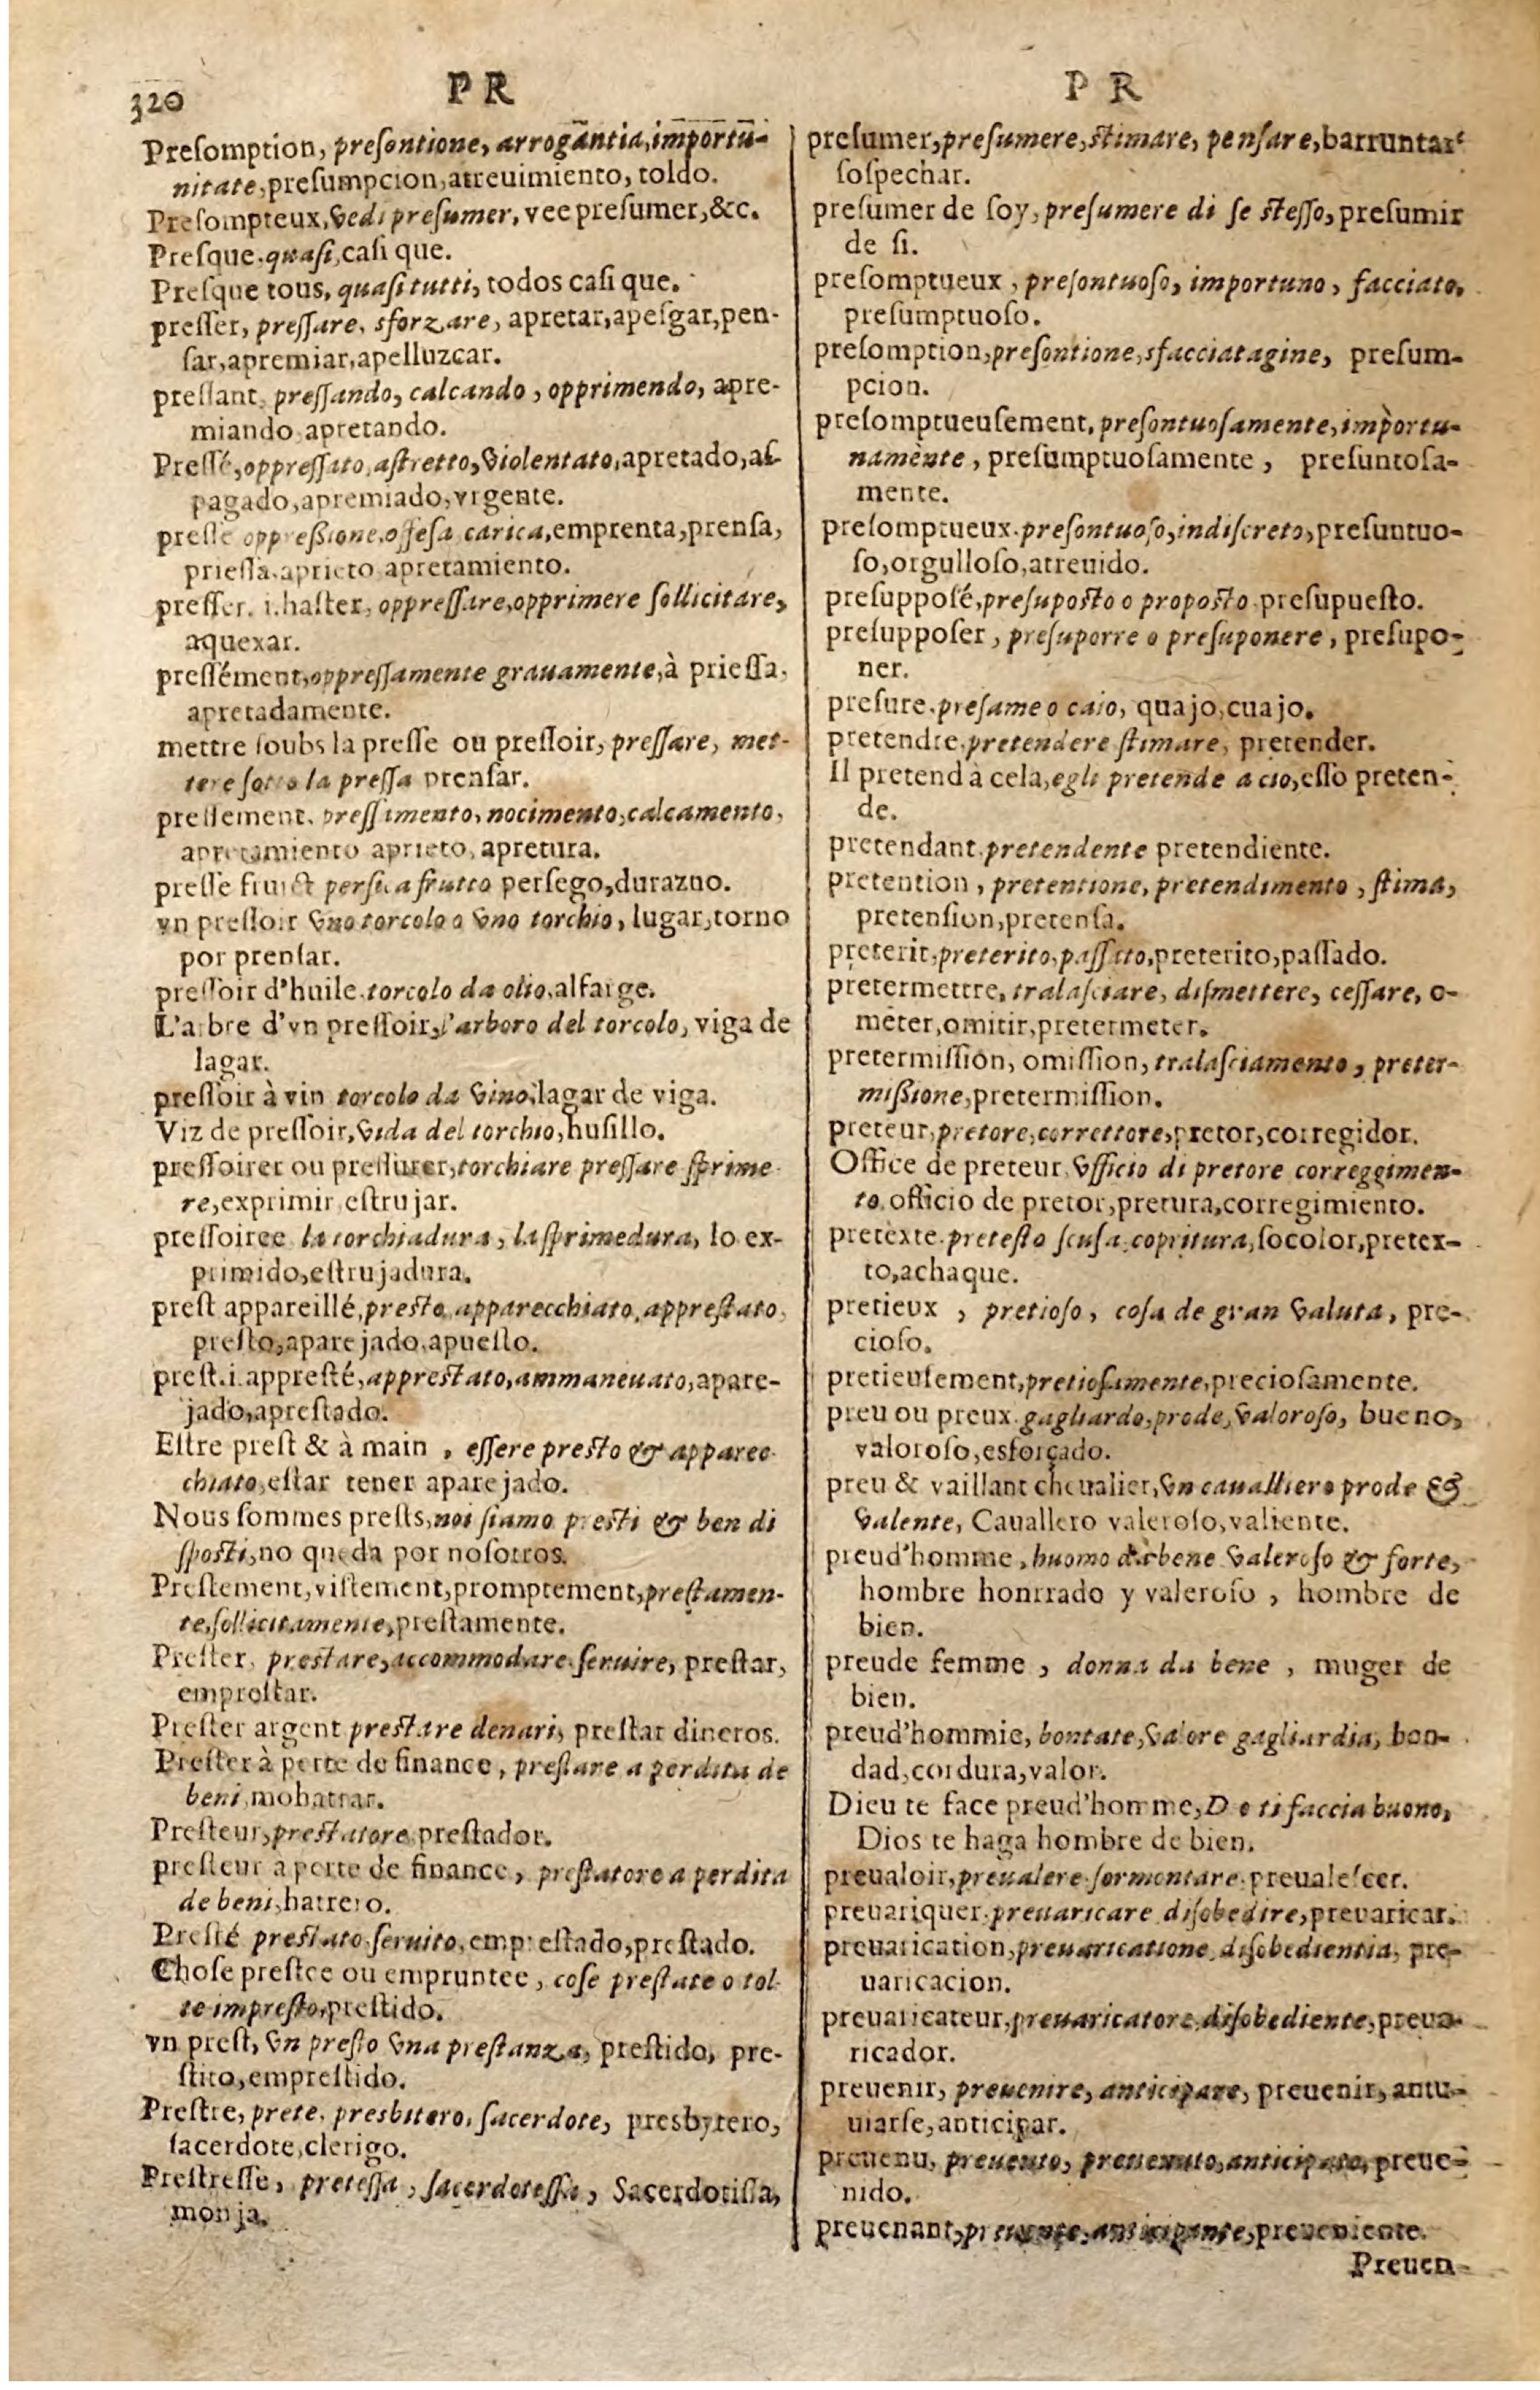 320
PR
PR
Preſomption, preſontione, arrogãntia, importu-
nitate, preſumpcion, atreuimiento, toldo.
Preſompteux, vedi preſumer, vee preſumer, &c.
Preſque. quaſi, caſi que.
Preſque tous, quaſi tutti, todos caſi que.
preſſer, preſſare, sforzare, apretar, apeſgar, pen-
ſar, apremiar, apelluzcar.
preſſant. preſſando, calcando, opprimendo, apre-
miando, apretando.
Preſſé, oppreſſato, aſtretto, violentato, apretado, aſ-
pagado, apremiado, vrgente.
preſſe oppreßione, offeſa carica, emprenta, prenſa,
prieſſa, aprieto apretamiento.
preſſer. i. haſter, oppreſſare, opprimere ſollicitare,
aquexar.
preſſément, oppreſſamente grauamente, à prieſſa,
apretadamente.
mettre ſoubs la preſſe ou preſſoir, preſſare, met-
tere ſotto la preſſa prenſar.
preſſement. preſſimento, nocimento, calcamento,
apretamiento aprieto, apretura.
preſſe fruict perſica frutto perſego, durazno.
vn preſſoir vno torcolo o vno torchio, lugar, torno
por prenſar.
preſſoir d'huile. torcolo da olio, alfarge.
L'arbre d'vn preſſoir, l'arboro del torcolo, viga de
lagar.
preſſoir à vin torcolo da vino, lagar de viga.
Viz de preſſoir, vida del torchio, huſillo.
preſſoirer ou preſſurer, torchiare preſſare ſprime
re, exprimir, eſtrujar.
preſſoiree la torchiadura, la ſprimedura, lo ex-
primido, eſtrujadura.
preſt appareillé, preſto, apparecchiato, appreſtato,
preſto, aparejado, apueſto.
preſt. i. appreſté, appreſtato, ammaneuato, apare-
jado, apreſtado.
Eſtre preſt & à main, eſſere preſto & apparec
chiato, eſtar tener aparejado.
Nous ſommes preſts, noi ſiamo preſti & ben di
ſpoſti, no queda por noſotros.
Preſtement, viſtement, promptement, preſtamen-
te, ſollicitamente, preſtamente.
Preſter, preſtare, accommodare ſeruire, preſtar,
empreſtar.
Preſter argent preſtare denari, preſtar dineros.
Preſter à perte de finance, preſtare a perdita de
beni, mohatrar.
Preſteur, preſtatore preſtador.
preſteur a perte de finance, preſtatore a perdita
de beni, hatrero.
Preſté preſtato ſeruito, empreſtado, preſtado.
Choſe preſtee ou empruntee, coſe preſtate o tol-
te impreſto, preſtido.
vn preſt, vn preſto vna preſtanza, preſtido, pre-
ſtito, empreſtido.
Preſtre, prete. presbitero, ſacerdote, presbytero,
ſacerdote, clerigo.
Preſtreſſe, preteſſa, ſacerdoteſſa, Sacerdotiſſa,
monja.
preſumer, preſumere, ſtimare, penſare, barruntar
ſoſpechar.
preſumer de ſoy, preſumere di ſe ſteſſo, preſumir
de ſi.
preſomptueux, preſontuoſo, importuno, facciato,
preſumptuoſo.
preſomption, preſontione, sfacciatagine, preſum-
pcion.
preſomptueuſement, preſontuoſamente, importu-
namènte, preſumptuoſamente, preſuntoſa-
mente.
preſomptueux. preſontuoſo, indiſcreto, preſuntuo-
ſo, orgulloſo, atreuido.
preſuppoſé, preſupoſto o propoſto preſupueſto.
preſuppoſer, preſuporre o preſuponere, preſupo-
ner.
preſure. preſame o caio, quajo, cuajo.
pretendre. pretendere ſtimare, pretender.
Il pretend à cela, egli pretende a cio, eſſo preten-
de.
pretendant. pretendente pretendiente.
pretention, pretentione, pretendimento, ſtima,
pretenſion, pretenſa.
preterit, preterito, paſſato, preterito, paſſado.
pretermettre, tralaſciare, diſmettere, ceſſare, o-
meter, omitir, pretermeter.
pretermiſſion, omiſſion, tralaſciamento, preter-
mißione, pretermiſſion.
preteur, pretore, correttore, pretor, corregidor.
Office de preteur vfficio di pretore correggimen-
to, officio de pretor, pretura, corregimiento.
pretexte. preteſto ſcuſa, copritura, ſocolor, pretex-
to, achaque.
pretieux, pretioſo, coſa de gran valuta, pre-
cioſo.
pretieuſement, pretioſamente, precioſamente.
preu ou preux. gagliardo, prode, valoroſo, bueno,
valoroſo, esforçado.
preu & vaillant cheualier, vn caualliero prode &
valente, Cauallero valeroſo, valiente.
preud'homme, huomo da bene valeroſo & forte,
hombre honrrado y valeroſo, hombre de
bien.
preude femme, donna da bene, muger de
bien.
preud'hommie, bontate, valore gagliardia, bon-
dad, cordura, valor.
Dieu te face preud'homme, Dio ti faccia buono,
Dios te haga hombre de bien.
preualoir, preualere ſormontare preualeſcer.
preuariquer. preuaricare diſobedire, preuaricar.
preuarication, preuaricatione, diſobedientia, pre-
uaricacion.
preuaricateur, preuaricatore, diſobediente, preua-
ricador.
preuenir, preuenire, anticipare, preuenir, antu-
uiarſe, anticipar.
preuenu, preuento, preuenuto, anticipato, preue-
nido.
preuenant, preuente, anticipante, preueniente.
Preuen-